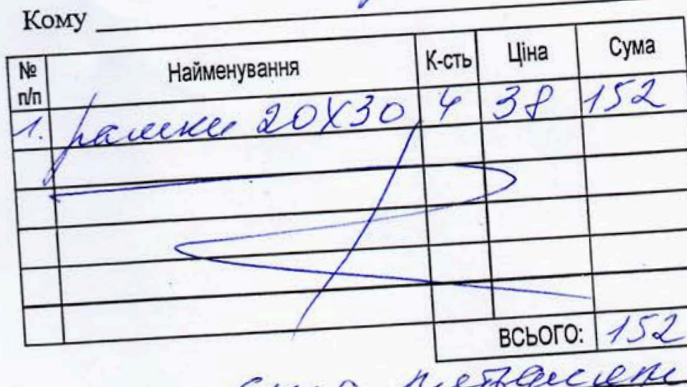 Кому
№ п/п Найменування К-сть Ціна Сума
1. рамки 20X30 4 38 152
ВСЬОГО: 152